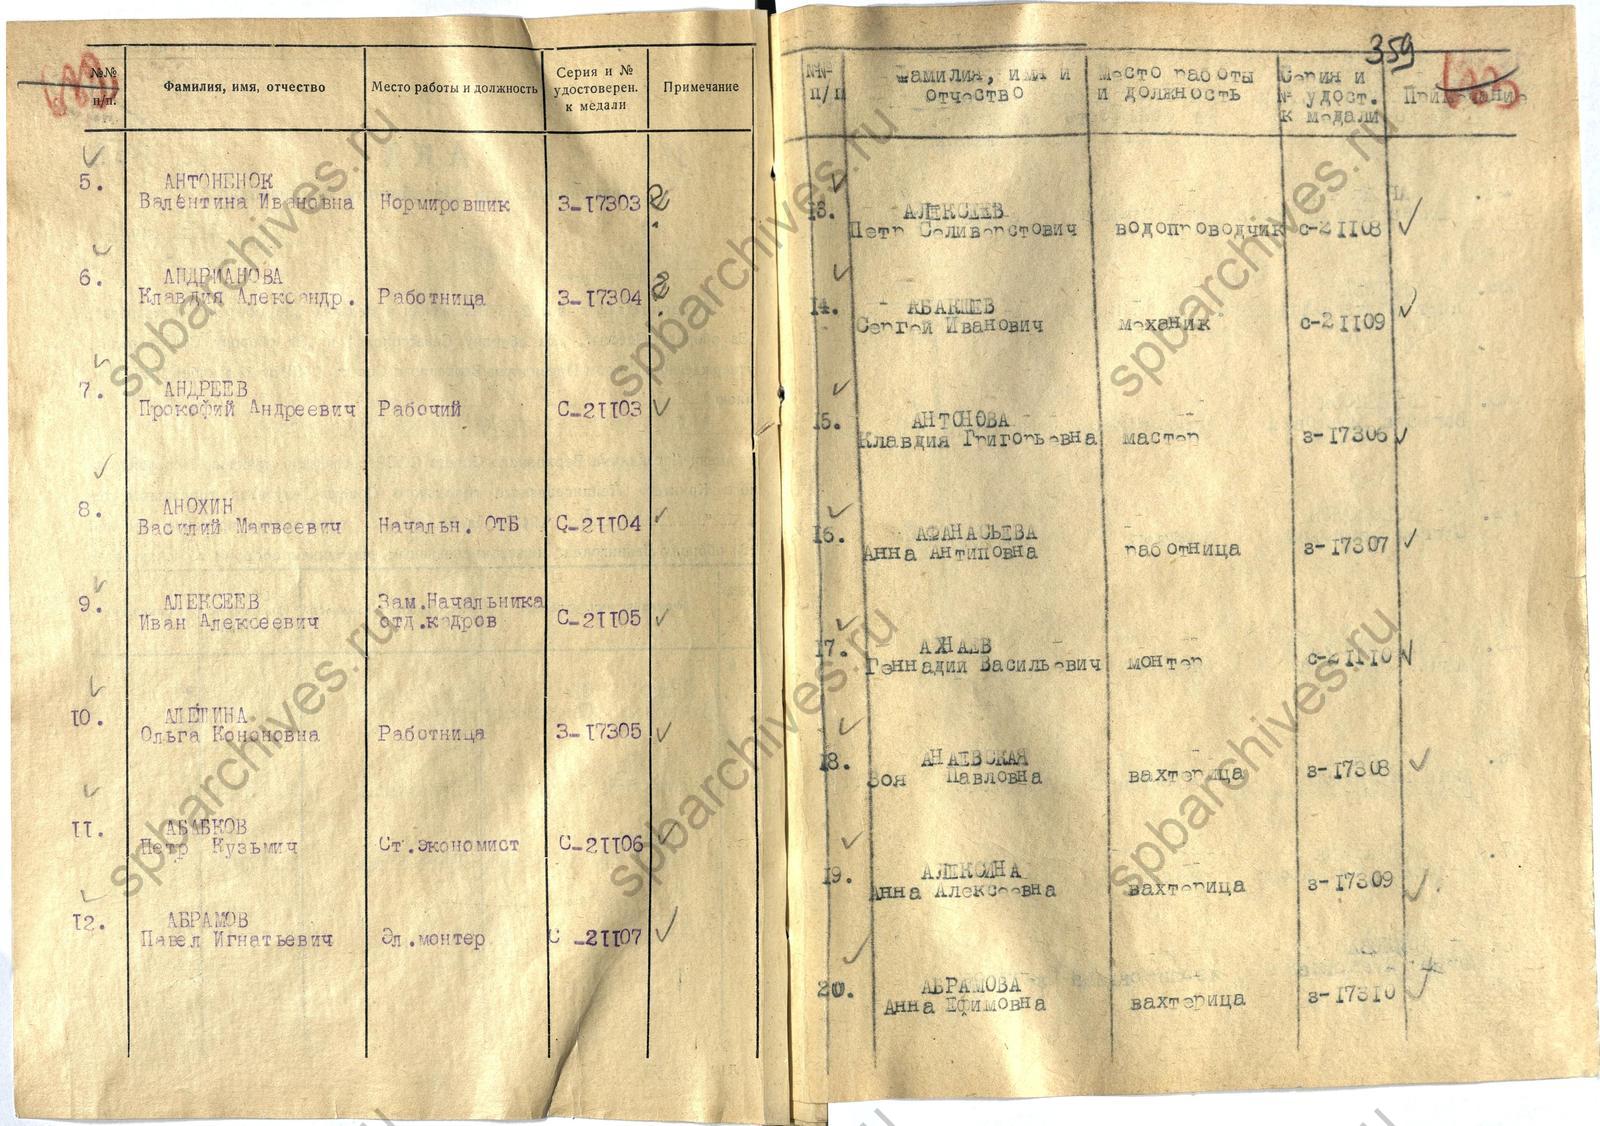 №№ п/п.
Фамилия, имя, отчество
Место работы и должность
Серия и № удостоверен. к медали
Примечание
5. АНТОНЕНОК
Валентина Ивановна Нормировщик З-17303
6. АНДРИАНОВА
Клавдия Александр. Работница З-17304
7. АНДРЕЕВ
Прокофий Андреевич Рабочий С-21103
8. АНОХИН
Василий Матвеевич Начальн. ОТБ С-21104
9. АЛЕКСЕЕВ Зам.Начальника
Иван Алексеевич отд.кадров С-21105
10. АЛЕШИНА
Ольга Кононовна Работница З-17305
11. АБАБКОВ
Петр Кузьмич Ст.экономист С-21106
12. АБРАМОВ
Павел Игнатьевич Эл.монтер С-21107
359
№№ п/п
Фамилия, имя и отчество
Место работы и должность
Серия и № удост. к медали
Примечание
13. АЛЕКСЕЕВ
Петр Селиверстович водопроводчик с-21108
14. АБАКШЕВ
Сергей Иванович механик с-21109
15. АНТОНОВА
Клавдия Григорьевна мастер з-17306
16. АФАНАСЬЕВА
Анна Антиповна работница з-17307
17. АЖАЕВ
Геннадий Васильевич монтер с-21110
18. АНАЕВСКАЯ
Зоя Павловна вахтерица з-17308
19. АЛЕКСИНА
Анна Алексеевна вахтерица з-17309
20. АБРАМОВА
Анна Ефимовна вахтерица з-17310
spbarchives.ru
spbarchives.ru
spbarchives.ru
spbarchives.ru
spbarchives.ru
spbarchives.ru